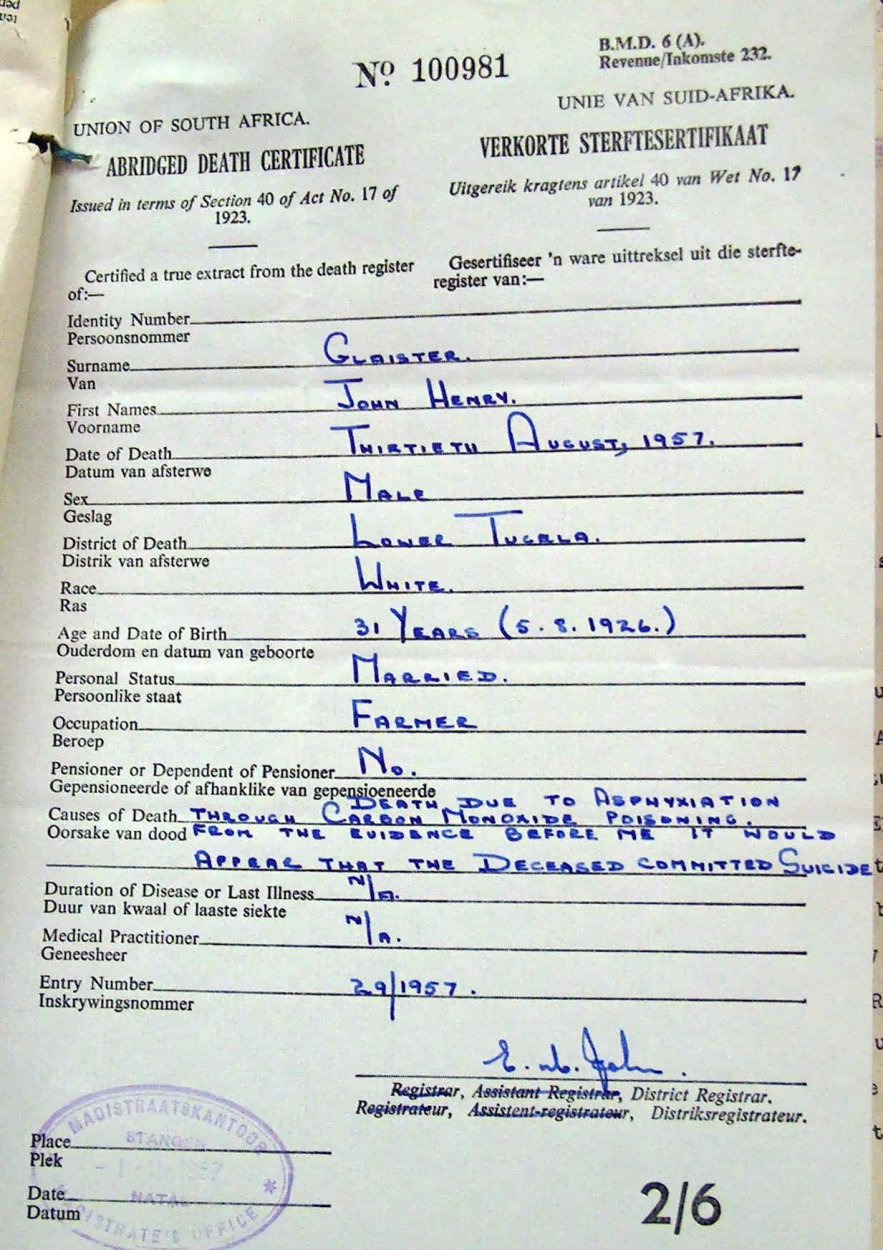 Nº 100981
B.M.D. 6 (A).
Revenue/Inkomste 232.
UNION OF SOUTH AFRICA.
ABRIDGED DEATH CERTIFICATE
Issued in terms of Section 40 of Act No. 17 of
1923.
Certified a true extract from the death register
of:—
UNIE VAN SUID-AFRIKA.
VERKORTE STERFTESERTIFIKAAT
Uitgereik kragtens artikel 40 van Wet No. 17
van 1923.
Gesertifiseer 'n ware uittreksel uit die sterfte-
register van:—
Identity Number
Persoonsnommer
Surname GLAISTER.
Van
First Names JOHN HENRY.
Voorname
Date of Death THIRTIETH AUGUST, 1957.
Datum van afsterwe
Sex MALE
Geslag
District of Death LOWER TUGELA.
Distrik van afsterwe
Race WHITE.
Ras
Age and Date of Birth 31 YEARS (5.8.1926.)
Ouderdom en datum van geboorte
Personal Status MARRIED.
Persoonlike staat
Occupation FARMER
Beroep
Pensioner or Dependent of Pensioner No.
Gepensioneerde of afhanklike van gepensioeneerde
DEATH DUE TO ASPHYXIATION
Causes of Death THROUGH CARBON MONOXIDE POISONING.
Oorsake van dood FROM THE EVIDENCE BEFORE ME IT WOULD
APPEAR THAT THE DECEASED COMMITTED SUICIDE
Duration of Disease or Last Illness N/A.
Duur van kwaal of laaste siekte
Medical Practitioner N/A.
Geneesheer
Entry Number 29/1957.
Inskrywingsnommer
Registrar, Assistant Registrar, District Registrar.
Registrateur, Assistent-registrateur, Distriksregistrateur.
Place
Plek
Date
Datum
MAGISTRAATSKANTOOR
STANGER
NATAL
MAGISTRATE'S OFFICE
2/6